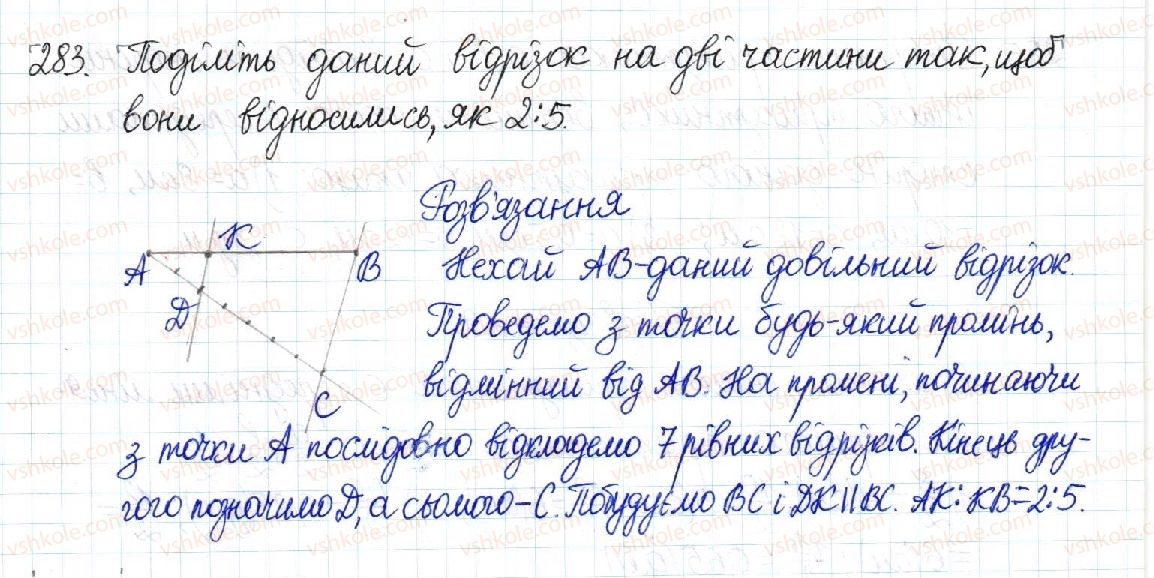 283. Поділіть даний відрізок на дві частини так, щоб
вони відносились, як 2:5.
Розв'язання
K
A
B
D
C
Нехай AB-даний довільний відрізок.
Проведемо з точки будь-який промінь,
відмінний від AB. На промені, починаючи
з точки A послідовно відкладемо 7 рівних відрізків. Кінець дру-
гого позначимо D, а сьомого - C. Побудуємо BC і DK || BC. AK:KB=2:5.
vshkole.com